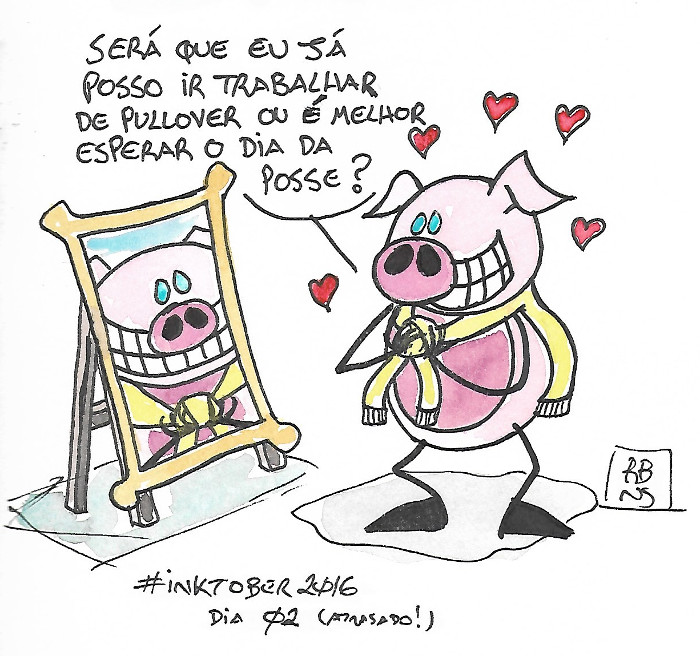 SERÁ QUE EU JÁ
POSSO IR TRABALHAR
DE PULLOVER OU É MELHOR
ESPERAR O DIA DA
POSSE?
RB
NS
#INKTOBER 2016
DIA 02 (ATRASADO!)